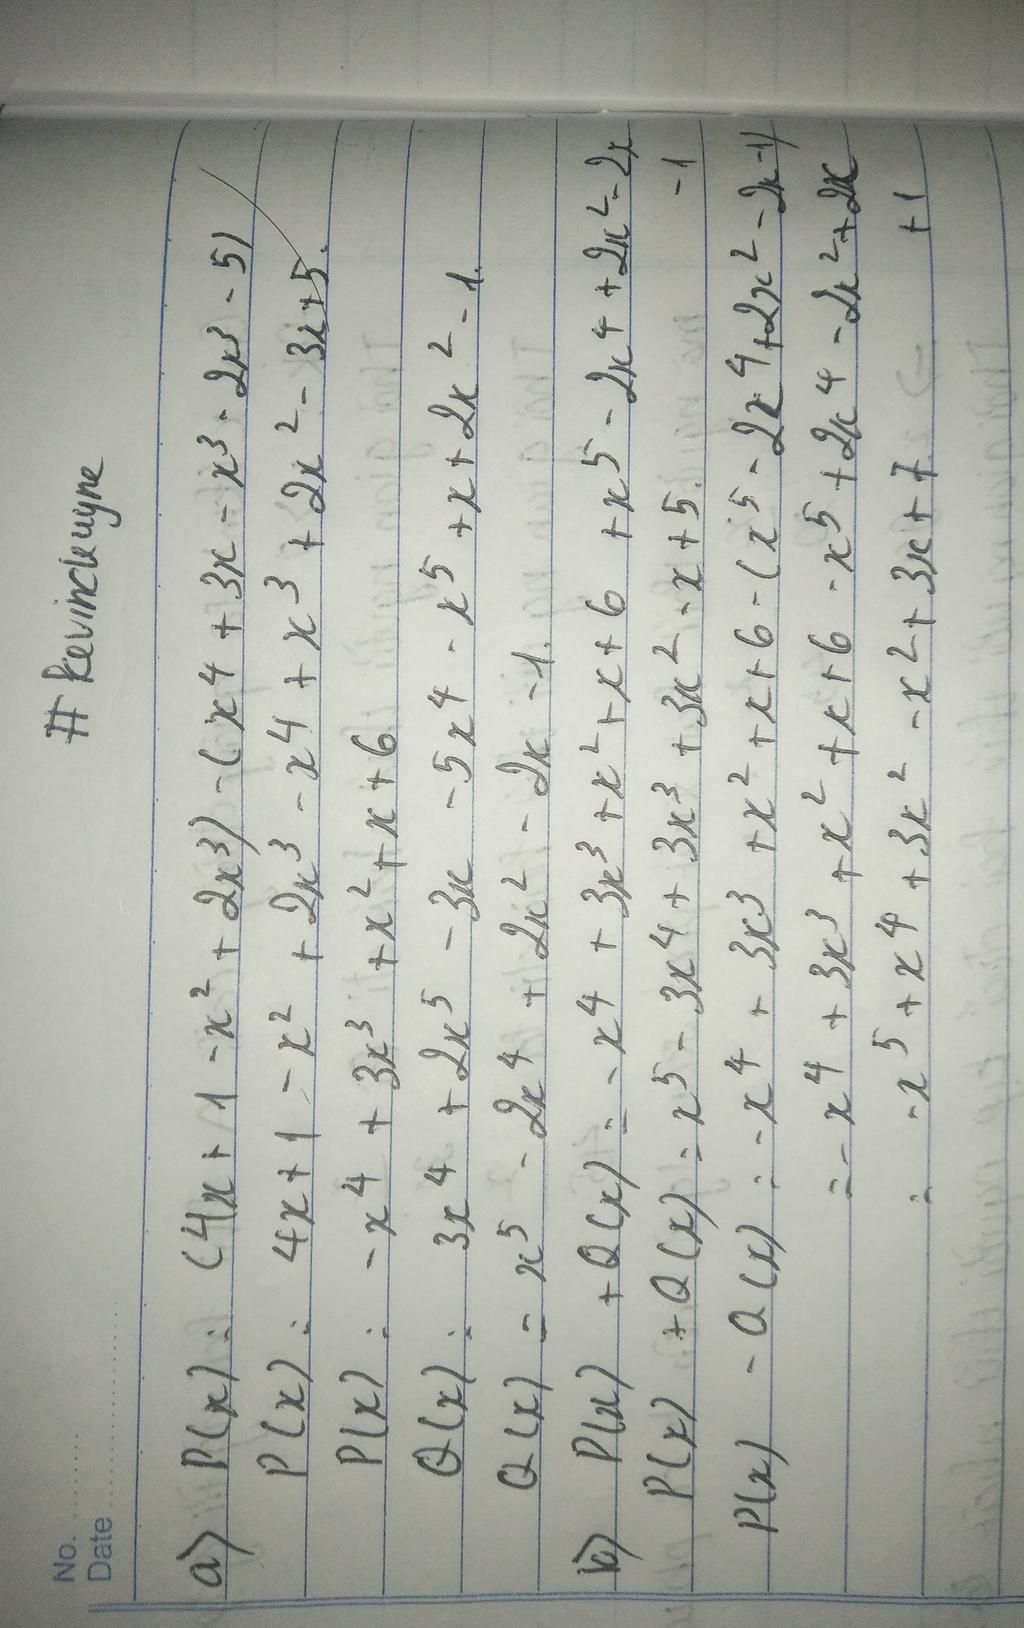 # Kevinckuyne
No.
Date
a) P(x) = (4x + 1 - x² + 2x³) - (x⁴ + 3x - x³ - 2x³ - 5)
P(x) = 4x + 1 - x² + 2x³ - x⁴ + x³ + 2x² - 3x + 5.
P(x) = -x⁴ + 3x³ + x² + x + 6
Q(x) = 3x⁴ + 2x⁵ - 3x - 5x⁴ - x⁵ + x + 2x² - 1.
Q(x) = x⁵ - 2x⁴ + 2x² - 2x - 1.
b) P(x) + Q(x) = -x⁴ + 3x³ + x² + x + 6 + x⁵ - 2x⁴ + 2x² - 2x
- 1
P(x) + Q(x) = x⁵ - 3x⁴ + 3x³ + 3x² - x + 5.
P(x) - Q(x) = -x⁴ + 3x³ + x² + x + 6 - (x⁵ - 2x⁴ + 2x² - 2x - 1)
= -x⁴ + 3x³ + x² + x + 6 - x⁵ + 2x⁴ - 2x² + 2x
+ 1
= -x⁵ + x⁴ + 3x² - x² + 3x + 7.